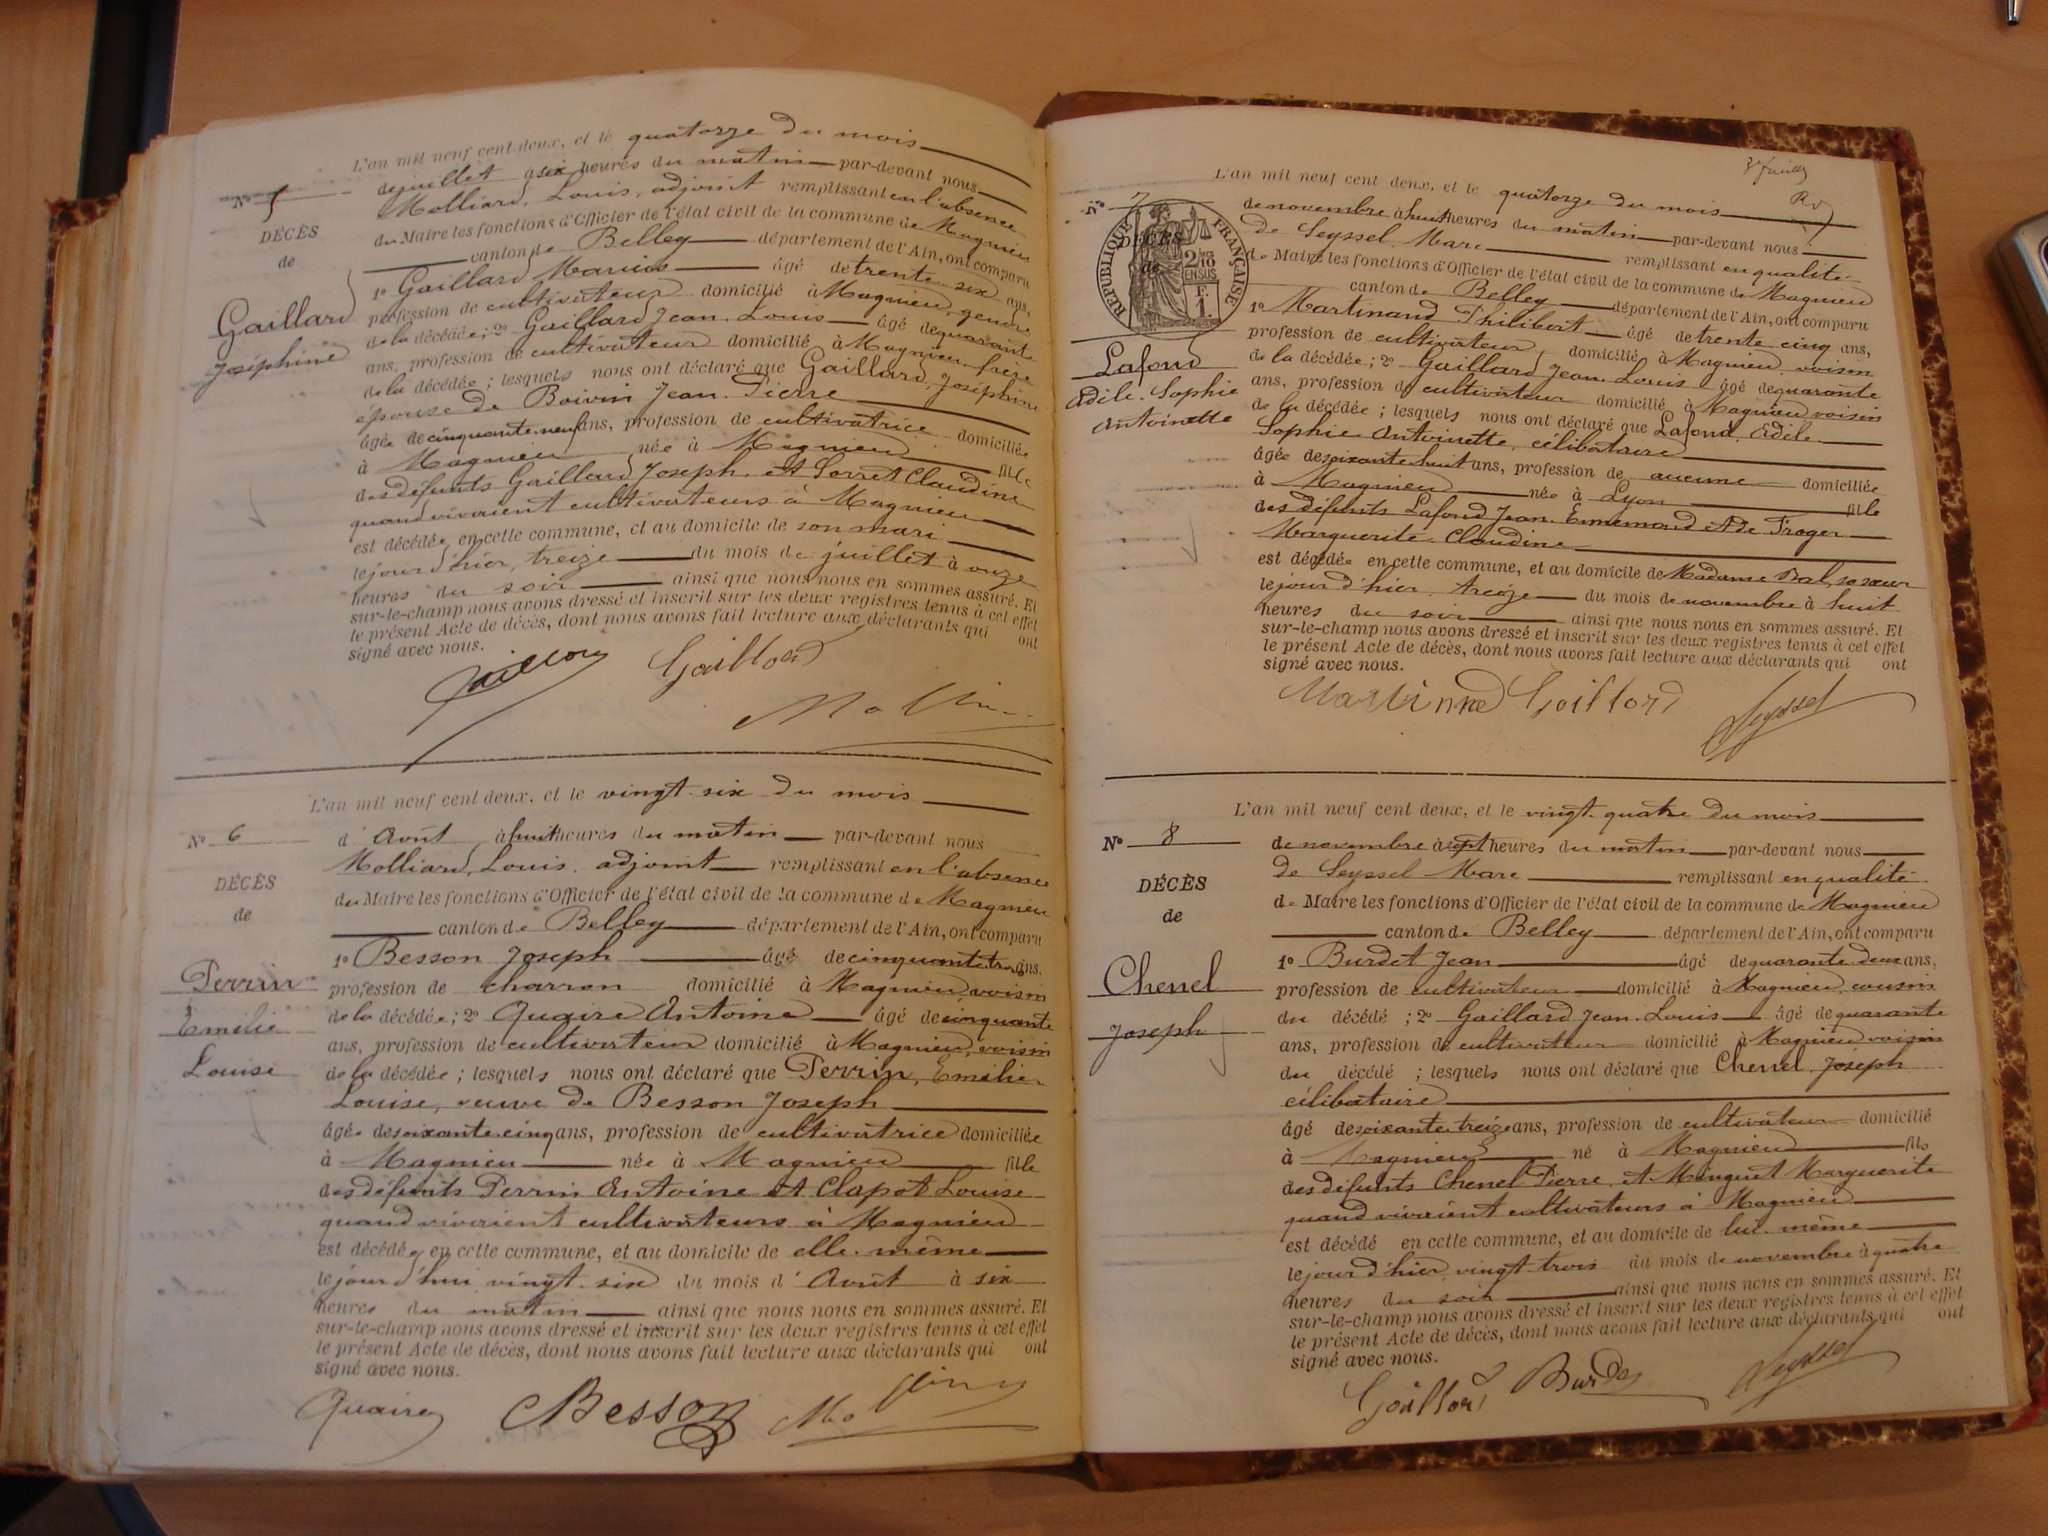 L'an mil neuf cent deux, et le quatorze du mois
No 5
de juillet à six heures du matin par-devant nous
Molliard, Louis, adjoint remplissant en l'absence
du Maire les fonctions d'Officier de l'état civil de la commune de Magnieu
DÉCÈS
de
canton de Belley département de l'Ain, ont comparu
1o Gaillard Marius âgé de trente six ans,
Gaillard
Joséphine
profession de cultivateur domicilié à Magnieu, gendre
de la décédée; 2o Gaillard Jean-Louis âgé de quarante
ans, profession de cultivateur domicilié à Magnieu frère
de la décédée; lesquels nous ont déclaré que Gaillard, Joséphine
épouse de Boivin Jean-Pierre
âgée de cinquante-neuf ans, profession de cultivatrice domiciliée
à Magnieu née à Magnieu fille
des défunts Gaillard Joseph et Sorret Claudine
quand vivaient cultivateurs à Magnieu
est décédée en cette commune, et au domicile de son mari
le jour d'hier, treize du mois de juillet à onze
heures du soir ainsi que nous nous en sommes assuré. Et
sur-le-champ nous avons dressé et inscrit sur les deux registres tenus à cet effet
le présent Acte de décès, dont nous avons fait lecture aux déclarants qui ont
signé avec nous.
Gaillard
L'an mil neuf cent deux, et le vingt-six du mois
No 6
d'Août à huit heures du matin par-devant nous
Molliard, Louis, adjoint remplissant en l'absence
du Maire les fonctions d'Officier de l'état civil de la commune de Magnieu
DÉCÈS
de
canton de Belley département de l'Ain, ont comparu
1o Besson Joseph âgé de cinquante-trois ans.
Perrin
Emélie
Louise
profession de charron domicilié à Magnieu voisin
de la décédée; 2o Quaire Antoine âgé de cinquante
ans, profession de cultivateur domicilié à Magnieu, voisin
de la décédée; lesquels nous ont déclaré que Perrin, Emélie
Louise, veuve de Besson Joseph
âgée de soixante-cinq ans, profession de cultivatrice domiciliée
à Magnieu née à Magnieu fille
des défunts Perrin Antoine et Clapot Louise
quand vivaient cultivateurs à Magnieu
est décédée en cette commune, et au domicile de elle-même
le jour d'hui vingt-six du mois d'Août à six
heures du matin ainsi que nous nous en sommes assuré. Et
sur-le-champ nous avons dressé et inscrit sur les deux registres tenus à cet effet
le présent Acte de décès, dont nous avons fait lecture aux déclarants qui ont
signé avec nous.
Quaire Besson
L'an mil neuf cent deux, et le quatorze du mois
No 7
RÉPUBLIQUE FRANÇAISE
de novembre à huit heures du matin par-devant nous
de Seyssel-Marc remplissant en qualité
de Maire les fonctions d'Officier de l'état civil de la commune de Magnieu
DÉCÈS
de
canton de Belley département de l'Ain, ont comparu
1o Martinand Philibert âgé de trente cinq ans,
Lafond
Adèle-Sophie
Antoinette
profession de cultivateur domicilié à Magnieu, voisin
de la décédée; 2o Gaillard Jean-Louis âgé de quarante
ans, profession de cultivateur domicilié à Magnieu voisin
de la décédée; lesquels nous ont déclaré que Lafond, Adèle
Sophie Antoinette, célibataire
âgée de soixante-huit ans, profession de aucune domiciliée
à Magnieu née à Lyon fille
des défunts Lafond Jean-Ennemond et de Froger
Marguerite-Claudine
est décédée en cette commune, et au domicile de Madame Bal, sa sœur
le jour d'hier, treize du mois de novembre à huit
heures du soir ainsi que nous nous en sommes assuré. Et
sur-le-champ nous avons dressé et inscrit sur les deux registres tenus à cet effet
le présent Acte de décès, dont nous avons fait lecture aux déclarants qui ont
signé avec nous.
Martinand Gaillard Seyssel
L'an mil neuf cent deux, et le vingt-quatre du mois
No 8
de novembre à sept heures du matin par-devant nous
de Seyssel-Marc remplissant en qualité
de Maire les fonctions d'Officier de l'état civil de la commune de Magnieu
DÉCÈS
de
canton de Belley département de l'Ain, ont comparu
1o Burdet Jean âgé de quarante-deux ans,
Chenel
Joseph
profession de cultivateur domicilié à Magnieu, cousin
du décédé; 2o Gaillard Jean-Louis âgé de quarante
ans, profession de cultivateur domicilié à Magnieu voisin
du décédé; lesquels nous ont déclaré que Chenel Joseph
célibataire
âgé de soixante-treize ans, profession de cultivateur domicilié
à Magnieu né à Magnieu fils
des défunts Chenel Pierre et Minguet Marguerite
quand vivaient cultivateurs à Magnieu
est décédé en cette commune, et au domicile de lui-même
le jour d'hier vingt-trois du mois de novembre à quatre
heures du soir ainsi que nous nous en sommes assuré. Et
sur-le-champ nous avons dressé et inscrit sur les deux registres tenus à cet effet
le présent Acte de décès, dont nous avons fait lecture aux déclarants qui ont
signé avec nous.
Gaillard Burdet Seyssel